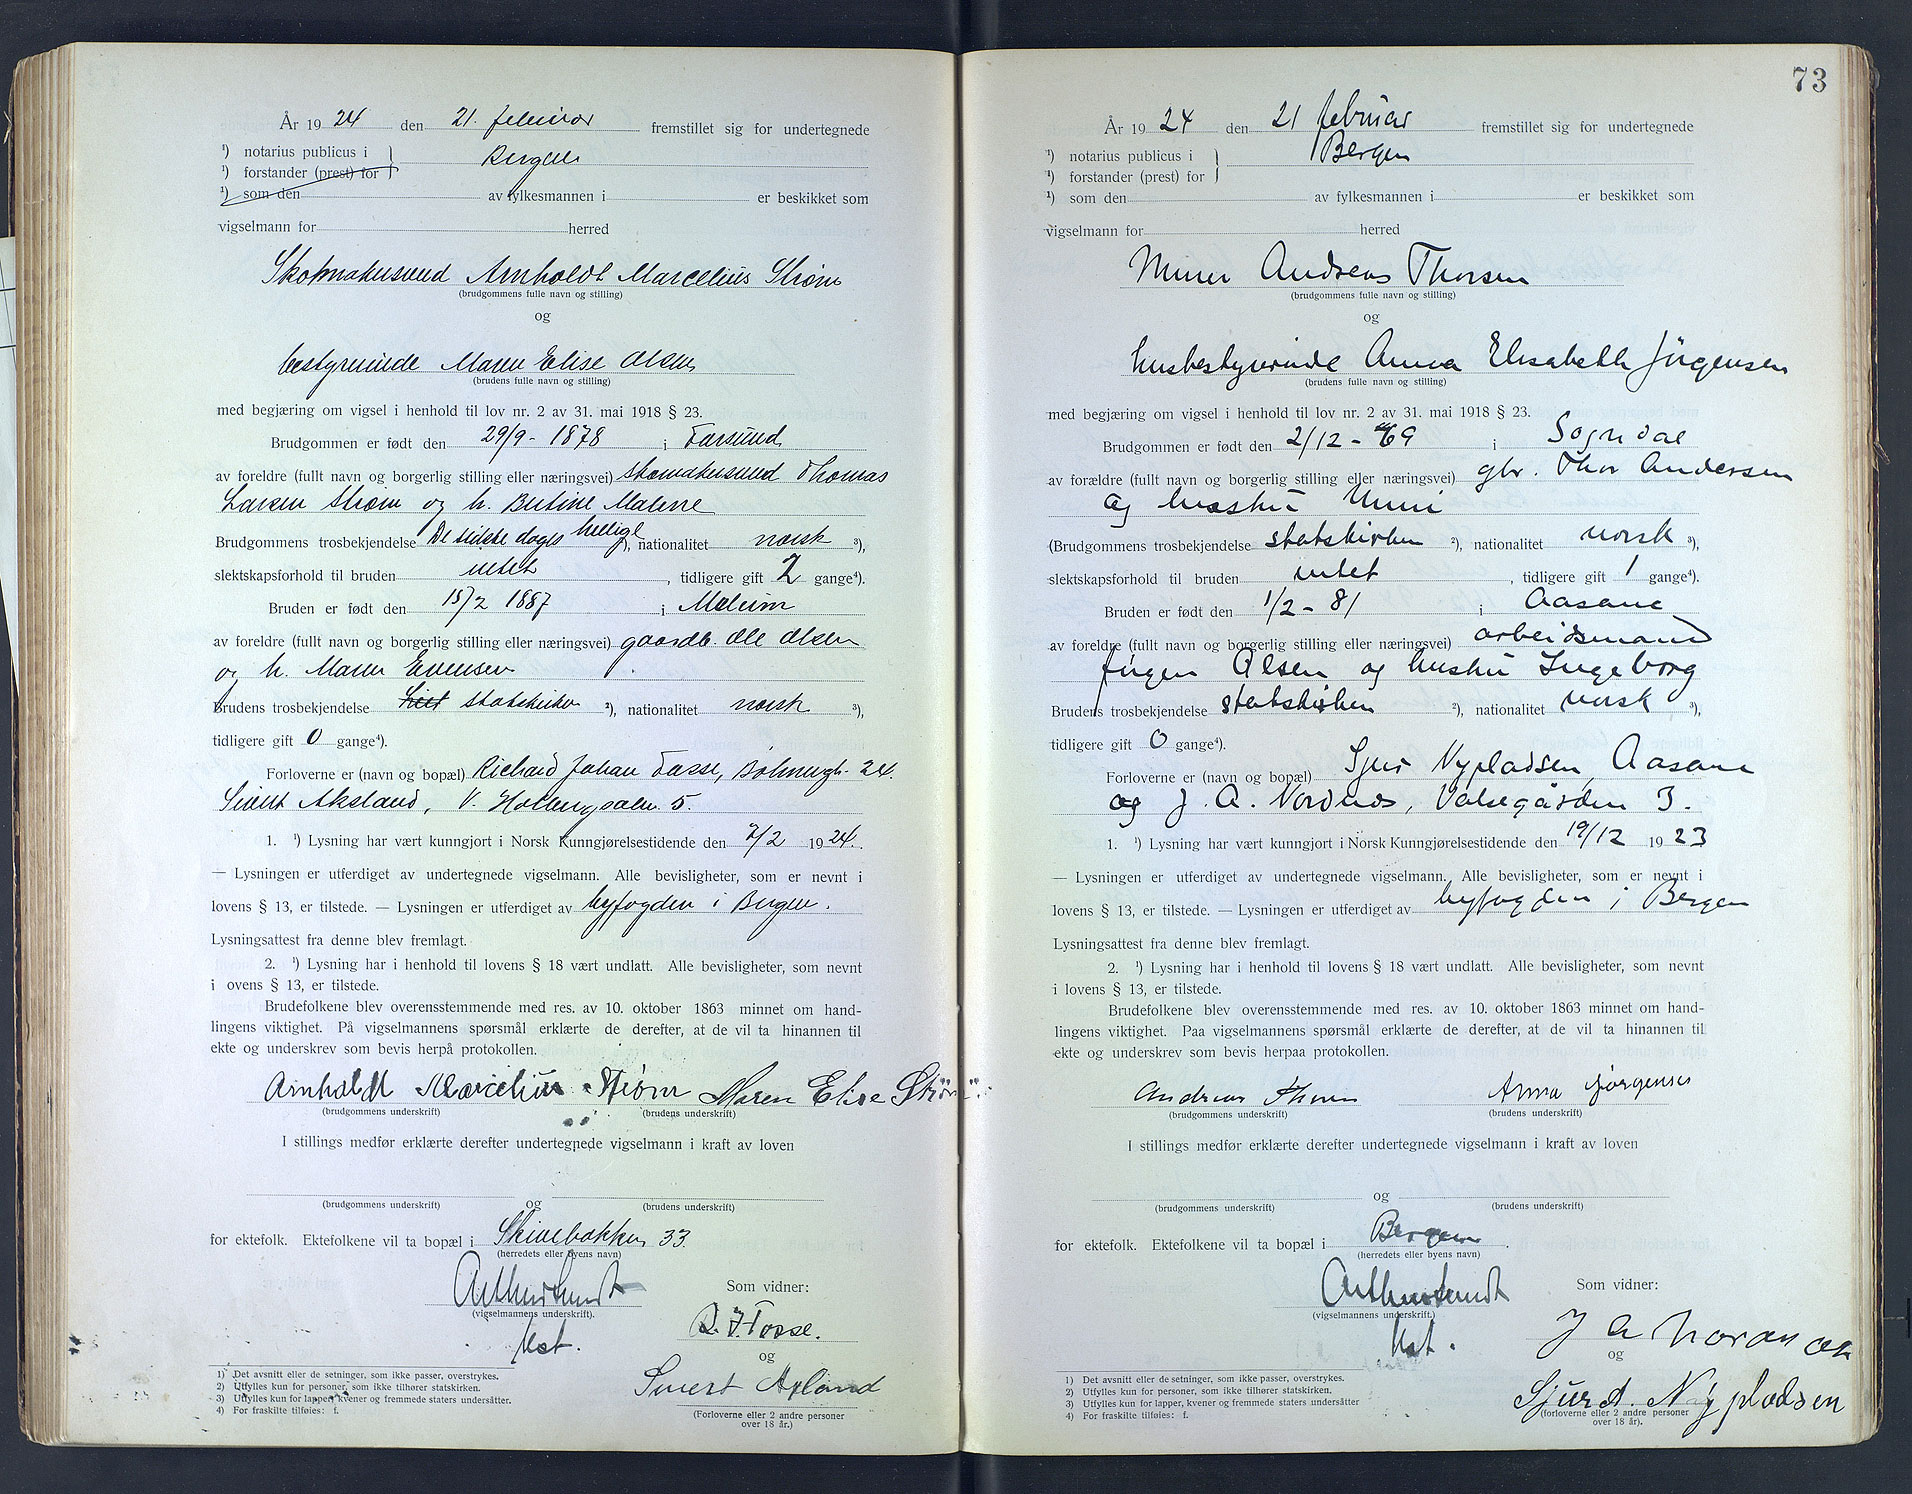 År 1924 den 21. februar fremstillet sig for undertegnede
¹) notarius publicus i } Bergen
¹) forstander (prest) for
¹) som den av fylkesmannen i er beskikket som
vigselmann for herred
Skomakersvend Arnholdt Marcelius Strøm
(brudgommens fulle navn og stilling)
og
bestyrerinde Maren Elise Olsen
(brudens fulle navn og stilling)
med begjæring om vigsel i henhold til lov nr. 2 av 31. mai 1918 § 23.
Brudgommen er født den 29/9 - 1878 i Farsund
av foreldre (fullt navn og borgerlig stilling eller næringsvei) skomakersvend Thomas
Larsen Strøm og h. Malene
Brudgommens trosbekjendelse De sidste dages hellige ²), nationalitet norsk ³),
slektskapsforhold til bruden intet, tidligere gift 2 gange⁴).
Bruden er født den 15/2 1887 i
av foreldre (fullt navn og borgerlig stilling eller næringsvei) gaardb. Ole Olsen
og h. Maren Evensen
Brudens trosbekjendelse statskirken ²), nationalitet norsk ³),
tidligere gift 0 gange⁴).
Forloverne er (navn og bopæl) Richard Johan Fasse, 24.
Sivert Aksland, V. 5.
1. ¹) Lysning har vært kunngjort i Norsk Kunngjørelsestidende den 7/2 1924.
— Lysningen er utferdiget av undertegnede vigselmann. Alle bevisligheter, som er nevnt i
lovens § 13, er tilstede. — Lysningen er utferdiget av byfogden i Bergen.
Lysningsattest fra denne blev fremlagt.
2. ¹) Lysning har i henhold til lovens § 18 vært undlatt. Alle bevisligheter, som nevnt
i ovens § 13, er tilstede.
Brudefolkene blev overensstemmende med res. av 10. oktober 1863 minnet om hand-
lingens viktighet. På vigselmannens spørsmål erklærte de derefter, at de vil ta hinannen til
ekte og underskrev som bevis herpå protokollen.
Arnholdt Marcelius Strøm Maren Elise Strøm
(brudgommens underskrift) (brudens underskrift)
I stillings medfør erklærte derefter undertegnede vigselmann i kraft av loven
og
(brudgommens underskrift) (brudens underskrift)
for ektefolk. Ektefolkene vil ta bopæl i Skivebakken 33
(herredets eller byens navn)
Som vidner:
(vigselmannens underskrift).
Kst. R. J. Fosse.
og
Sivert Axland
(Forloverne eller 2 andre personer
over 18 år.)
1) Det avsnitt eller de setninger, som ikke passer, overstrykes.
2) Utfylles kun for personer, som ikke tilhører statskirken.
3) Utfylles kun for lapper, kvener og fremmede staters undersåtter.
4) For fraskilte tilføies: f.
73
År 1924 den 21 februar fremstillet sig for undertegnede
¹) notarius publicus i } Bergen
¹) forstander (prest) for
¹) som den av fylkesmannen i er beskikket som
vigselmann for herred
Murer Andreas Thorsen
(brudgommens fulle navn og stilling)
og
husbestyrerinde Anna Elisabeth Jürgensen
(brudens fulle navn og stilling)
med begjæring om vigsel i henhold til lov nr. 2 av 31. mai 1918 § 23.
Brudgommen er født den 2/12 - 69 i Sogndal
av forældre (fullt navn og borgerlig stilling eller næringsvei) gbr. Thor Andersen
og hustru Unni
(Brudgommens trosbekjendelse statskirken ²), nationalitet norsk ³),
slektskapsforhold til bruden intet, tidligere gift 1 gange⁴).
Bruden er født den 1/2 - 81 i Aasane
av foreldre (fullt navn og borgerlig stilling eller næringsvei) arbeidsmand
Jürgen Olsen og hustru Ingeborg
Brudens trosbekjendelse statskirken ²), nationalitet norsk ³),
tidligere gift 0 gange⁴).
Forloverne er (navn og bopæl) Sjur Nypladsen, Aasane
og J. A. Nordnes, 3.
1. ¹) Lysning har vært kunngjort i Norsk Kunngjørelsestidende den 19/12 1923
— Lysningen er utferdiget av undertegnede vigselmann. Alle bevisligheter, som er nevnt i
lovens § 13, er tilstede. — Lysningen er utferdiget av byfogden i Bergen
Lysningsattest fra denne blev fremlagt.
2. ¹) Lysning har i henhold til lovens § 18 vært undlatt. Alle bevisligheter, som nevnt
i lovens § 13, er tilstede.
Brudefolkene blev overensstemmende med res. av 10. oktober 1863 minnet om hand-
lingens viktighet. Paa vigselmannens spørsmål erklærte de derefter, at de vil ta hinannen til
ekte og underskrev som bevis herpaa protokollen.
Andreas Thorsen Anna Jørgensen
(brudgommens underskrift) (brudens underskrift)
I stillings medfør erklærte derefter undertegnede vigselmann i kraft av loven
og
(brudgommens underskrift) (brudens underskrift)
for ektefolk. Ektefolkene vil ta bopæl i Bergen.
(herredets eller byens navn)
Som vidner:
(vigselmannens underskrift.)
Kst. J A
og
Sjurd. Nyplodsen
(forloverne eller 2 andre personer
over 18 år).
1) Det avsnitt eller de setninger, som ikke passer, overstrykes.
2) Utfylles kun for personer, som ikke tilhører statskirken.
3) Utfylles kun for lapper, kvener og fremmede staters undersåtter
4) For fraskilte tilføies: f.